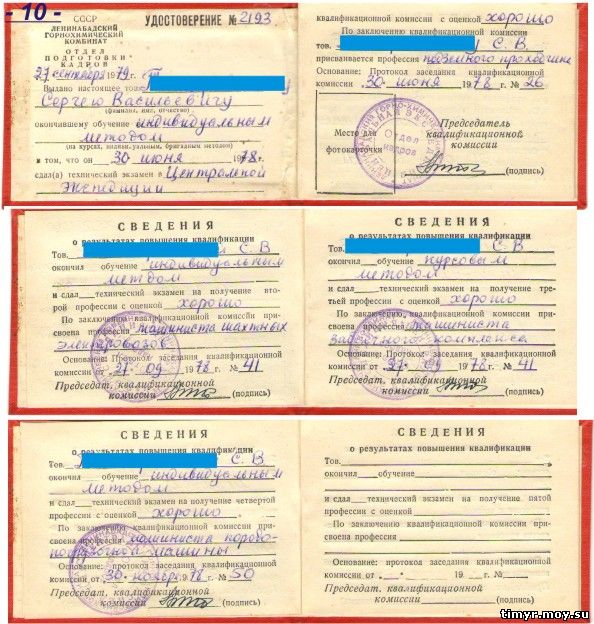 - 10 -
СССР
ЛЕНИНАБАДСКИЙ
ГОРНОХИМИЧЕСКИЙ
КОМБИНАТ
ОТДЕЛ
ПОДГОТОВКИ
КАДРОВ
УДОСТОВЕРЕНИЕ № 2193
27 сентября 1979 г.
Выдано настоящее тов.
Сергею Васильевичу
(фамилия, имя, отчество)
окончившему обучение индивидуальным
методом
(на курсах, индивидуальным, бригадным методом)
в том, что он 30 июня 1978 г.
сдал(а) технический экзамен в Центральной
Экспедиции
квалификационной комиссии с оценкой хорошо
По заключению квалификационной комиссии
тов. С. В.
присваивается профессия подземного проходчика
Основание: Протокол заседания квалификационной
комиссии 30 июня 1978 г. № 26
Место для
фотокарточки
Отдел
кадров
Председатель
квалификационной
комиссии
(подпись)
СВЕДЕНИЯ
о результатах повышения квалификации
Тов. С. В
окончил обучение индивидуальным
методом
и сдал технический экзамен на получение вто-
рой профессии с оценкой хорошо
По заключению квалификационной комиссии при-
своена профессия машиниста шахтных
электровозов
Основание: Протокол заседания квалификационной
комиссии от 27. 09 1978 г. № 41
Председат. квалификационной
комиссии (подпись)
СВЕДЕНИЯ
о результатах повышения квалификации
Тов. С. В
окончил обучение курсовым
методом
и сдал технический экзамен на получение тре-
тьей профессии с оценкой хорошо
По заключению квалификационной комиссии при-
своена профессия машиниста
комплекса
Основание: Протокол заседания квалификационной
комиссии от 27. 09 1978 г. № 41
Председат. квалификационной
комиссии (подпись)
СВЕДЕНИЯ
о результатах повышения квалификации
Тов. С. В
окончил обучение индивидуальным
методом
и сдал технический экзамен на получение четвертой
профессии с оценкой хорошо
По заключению квалификационной комиссии при-
своена профессия машиниста породо-
погрузочной машины
Основание: протокол заседания квалификационной
комиссии от 30 ноября 1978 г. № 50
Председат. квалификационной
комиссии (подпись)
СВЕДЕНИЯ
о результатах повышения квалификации
Тов.
окончил обучение
и сдал технический экзамен на получение пятой
профессии с оценкой
По заключению квалификационной комиссии при-
своена профессия
Основание: протокол заседания квалификационной
комиссии от 19 г. №
Председат. квалификационной
комиссии (подпись)
timyr.moy.su